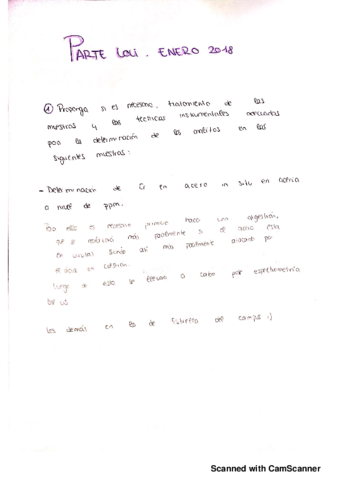 PARTE LOLI. ENERO 2018
① Proponga si es necesario, tratamiento de las
muestras y las tecnicas instrumentales adecuadas
para la determinación de los analitos en las
siguientes muestras:
- Determinación de Cr en acero in situ en
a nivel de ppm.
Para ello es necesario primero hacer una digestión,
que se realizará más facilmente si el acero esta
en virutas siendo así más facilmente atacado por
el ácido en
esto se llevara a cabo por espectrometría
de
Los demás en lo de Febrero del campus :)
Scanned with CamScanner